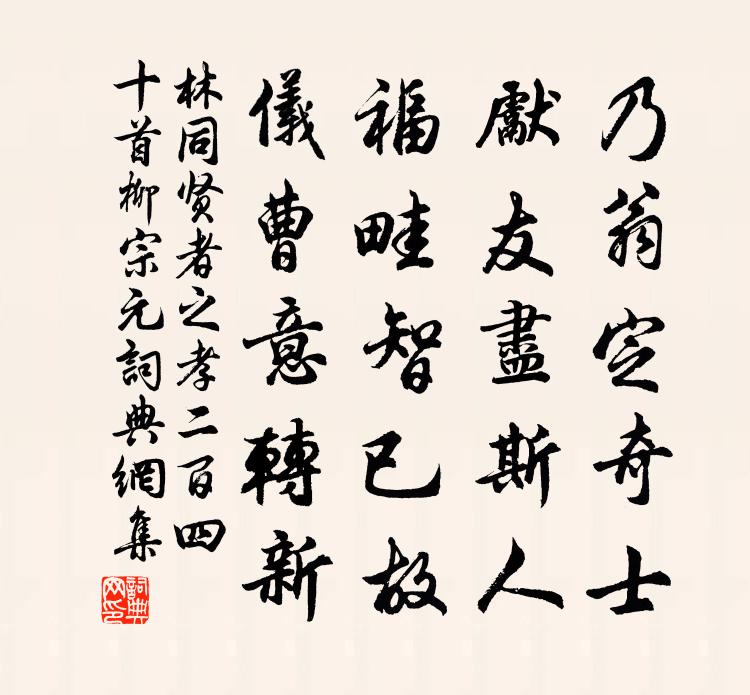 乃翁定奇士
獻友盡斯人
福畦智已故
儀曹意轉新
林同贤者之孝二百四
十首柳宗元詞典網集
詞典
网印